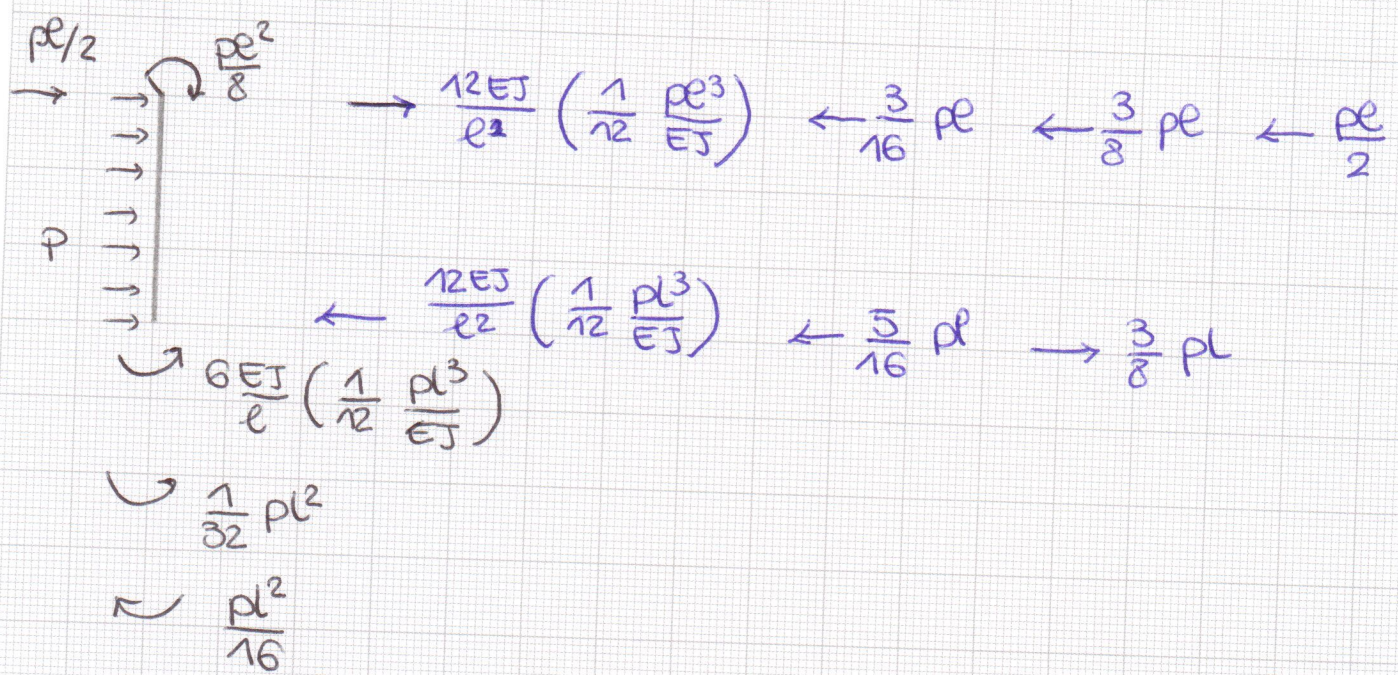 pl/2 pl²/8 → 12EJ/l² (1/12 pl³/EJ) ← 3/16 pl ← 3/8 pl ← pl/2
p
← 12EJ/l² (1/12 pl³/EJ) ← 5/16 pl → 3/8 pl
6 EJ/l (1/12 pl³/EJ)
1/32 pl²
pl²/16